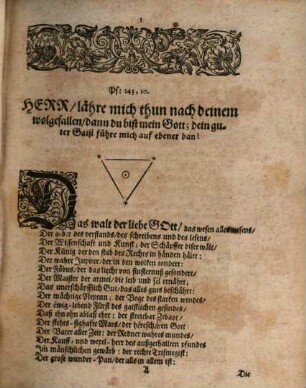 1
Ps: 143, 10.
HERR/lähre mich thun nach deinem
wolgefallen/dann du bist mein Gott; dein gu-
ter Gaist führe mich auf ebener ban!
Das walt der liebe GOtt/das wesen alles wesens/
Der a.b.c. des verstands/des schreibens und des lesens/
Der Wissenschaft und Kunst; der Schöpffer diser wält/
Der König der den stab des Rechts in händen hält:
Der wahre Jupiter/der in den wolken wendert
Der Föbus/der das liecht von finsternuß gesendert/
Der Maister der arznei/die leib und sel ernähret;
Das unerschöpflich Gut/das alles guts beschähret:
Der mächtige Neptun; der Vogt der starken windes/
Der ewig-lebend Fürst des gaistlichen gesindes/
Daß ihn ohn ablaß ehrt: der streitbar Zebaot/
Der stehts-sighafte Mars/der höreschären Gott
Der Vater aller Zeit: der Redner wahres mundes/
Der Kauff- und wexel-herr des aufgerhaltem pfundes
In mänschlichen gewärb: der rechte Trismegist:
Der große wunder-Pan/der alls in allem ist:
A
Die